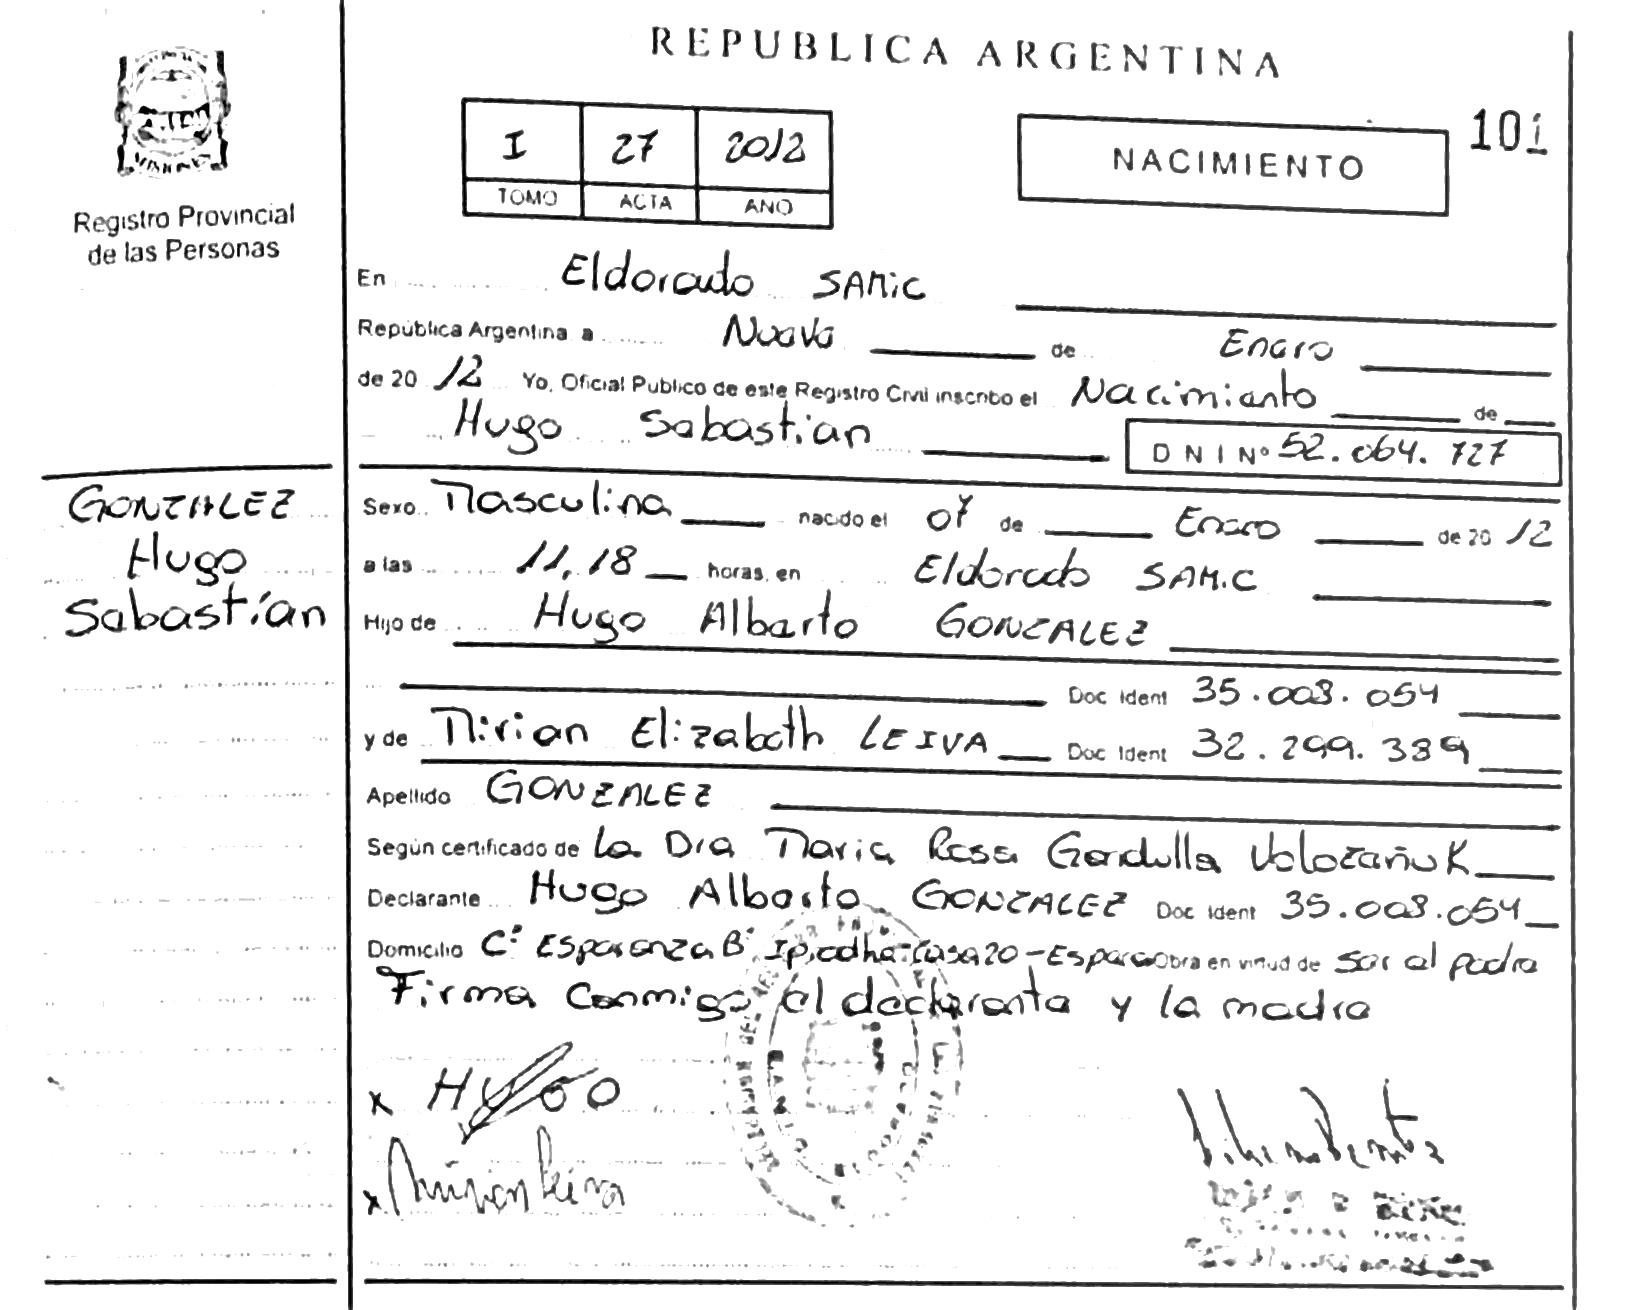 REPUBLICA ARGENTINA
101
I 27 2012
TOMO ACTA AÑO
NACIMIENTO
MISIONES
Registro Provincial
de las Personas
En Eldorado SAMIC
República Argentina a Nueve de Enero
de 2012 Yo, Oficial Publico de este Registro Civil inscribo el Nacimiento de
Hugo Sebastian
D N I Nº 52.064.727
GONZALEZ
Hugo
Sebastian
Sexo Masculino nacido el 07 de Enero de 2012
a las 11,18 horas, en Eldorado SAMIC
Hijo de Hugo Alberto GONZALEZ
Doc Ident 35.008.054
y de Mirian Elizabeth LEIVA Doc Ident 32.299.389
Apellido GONZALEZ
Según certificado de La Dra Maria Rosa
Declarante Hugo Alberto GONZALEZ Doc Ident 35.008.054
Domicilio Cº Esperanza Bº casa 20 - Obra en virtud de ser el padre
Firma Conmigo el declarante y la madre
x HUGO
x Mirian Leiva